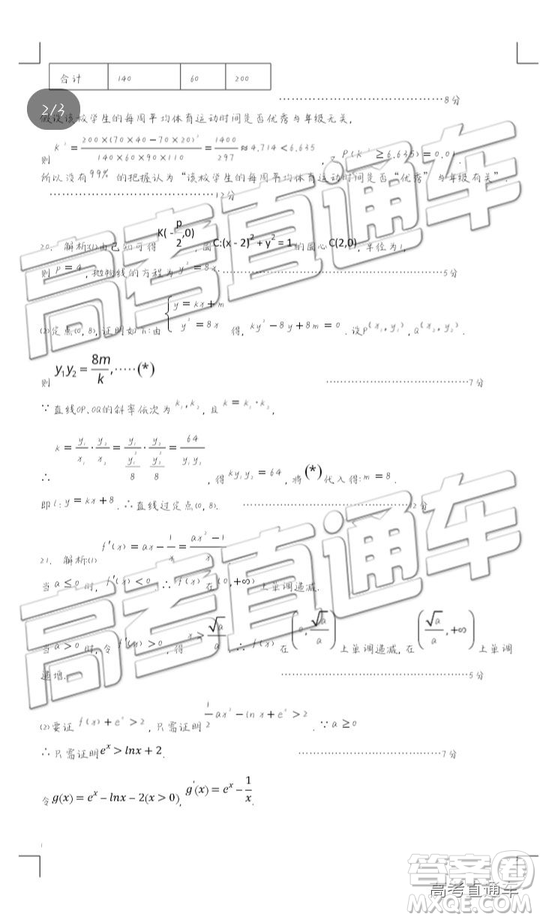 合计 140 60 200
8分
2/3
假设该校学生的每周平均体育运动时间是否优秀与年级无关,
则 K² = 200×(70×40−70×20)² / 140×60×90×110 = 1400/297 ≈ 4.714 < 6.635 , 又 P(K² ≥ 6.635) = 0.01.
所以没有99%的把握认为“该校学生的每周平均体育运动时间是否“优秀”与年级有关”.
12分
20. 解析(1)由已知可得 K(-p/2,0) , 圆 C:(x - 2)² + y² = 1 的圆心 C(2,0) , 半径为1,
则 P = 4 , 抛物线的方程为 y² = 8x . 5分
(2)定点(0, 8), 证明如下:由 { y = kx + m y² = 8x 得, ky² − 8y + 8m = 0 . 设 P(x₁, y₁) , Q(x₂, y₂) ,
则 y₁y₂ = 8m/k ,·····(*) 7分
∵ 直线OP、OQ的斜率依次为 k₁, k₂ , 且
∴ , 得 ky₁y₂ = 64 , 将 (*) 代入得: m = 8 .
即 l : y = kx + 8 . ∴ 直线过定点(0, 8). 12分
21. 解析(1) f′(x) = ax − 1/x = (ax² − 1)/x
当 a ≤ 0 时, f′(x) < 0 , ∴ f(x) 在 (0, +∞) 上单调递减.
当 a > 0 时, 令 f′(x) > 0 , 得 x > √a/a , ∴ f(x) 在 (0, √a/a) 上单调递减, 在 (√a/a, +∞) 上单调
递增. 5分
(2)要证 f(x) + eˣ > 2 , 只需证明 1/2 ax² − ln x + eˣ > 2 . ∵ a ≥ 0
∴ 只需证明 eˣ > lnx + 2. 7分
令 g(x) = eˣ − lnx − 2(x > 0), g′(x) = eˣ − 1/x.
高考直通车
高考直通车
答案圈
高考直通车